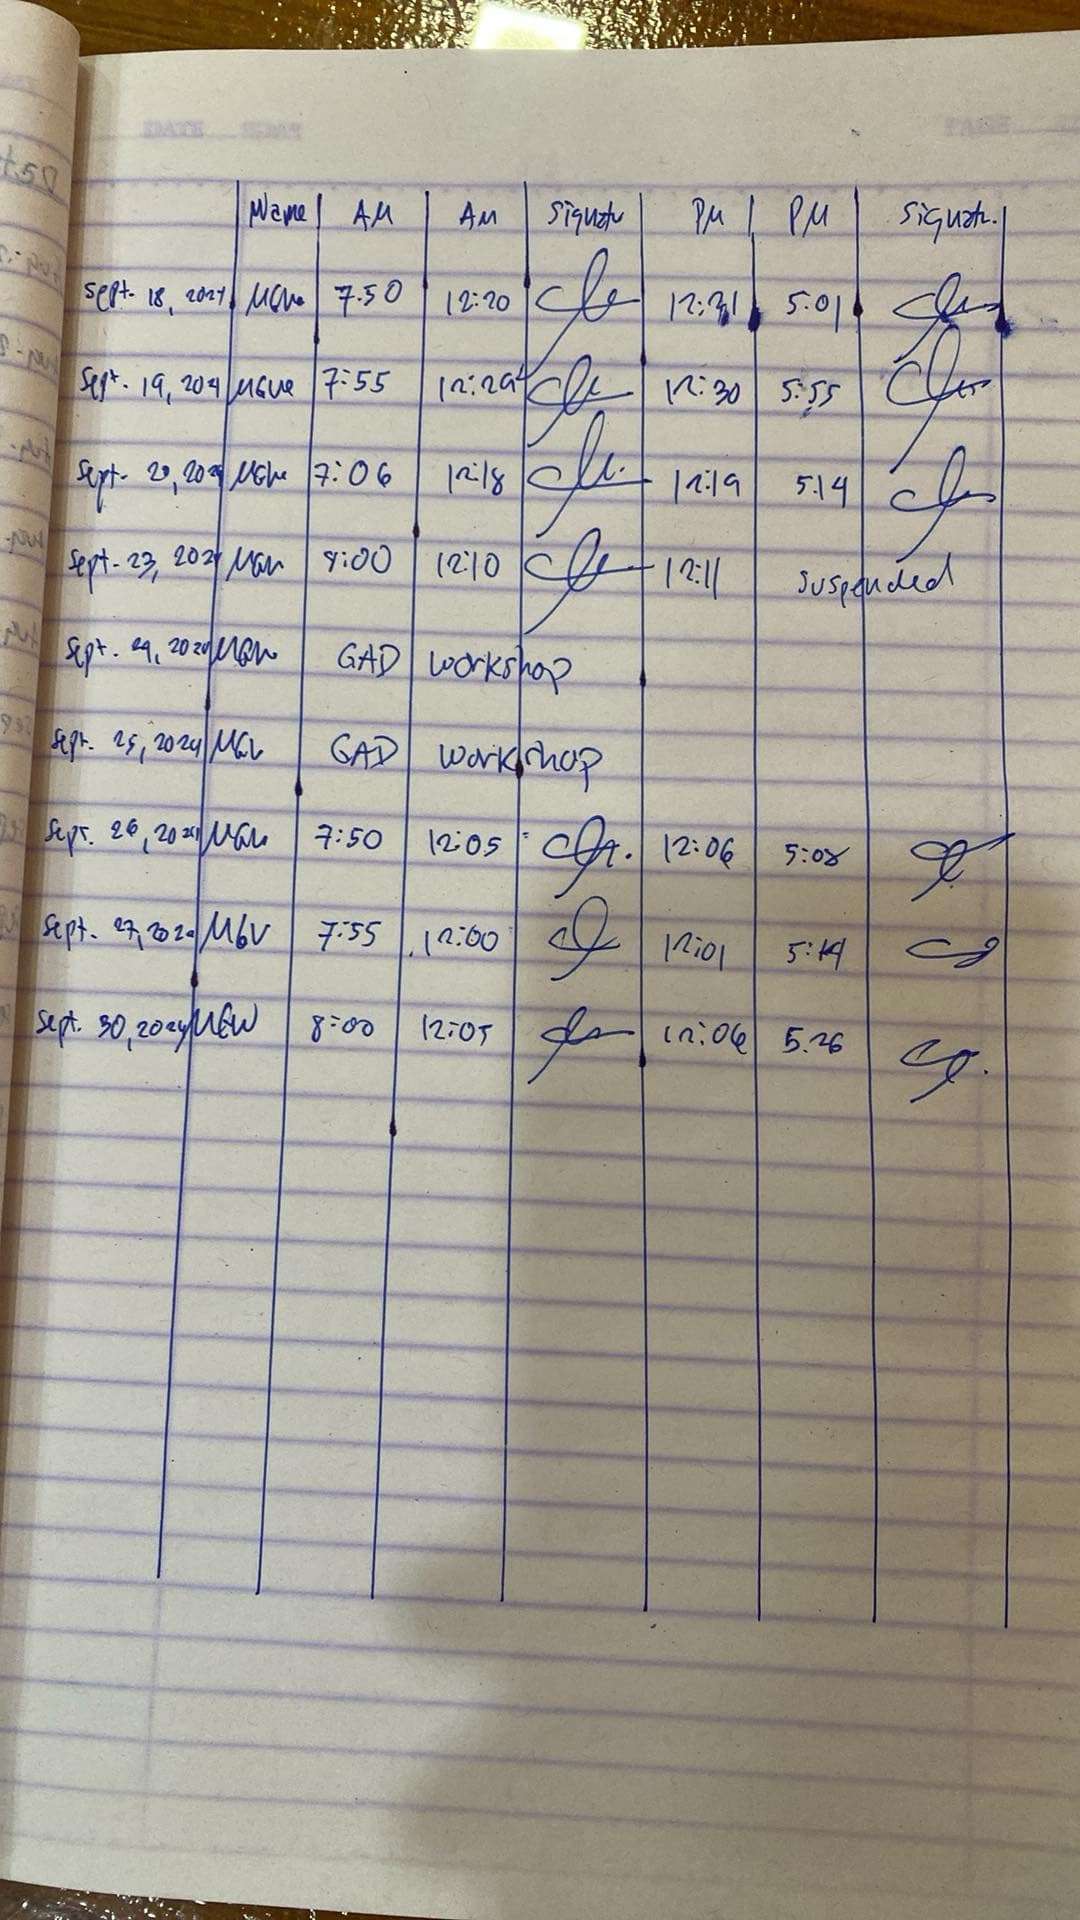 Name AM AM Signatu PM PM Signatu.
Sept. 18, 2024 7:50 12:20 12:21 5:01
Sept. 19, 2024 7:55 12:29 12:30 5:55
Sept. 20, 2024 7:06 12:18 12:19 5:14
Sept. 23, 2024 8:00 12:10 12:11 Suspended
Sept. 24, 2024 GAD Workshop
Sept. 25, 2024 GAD Workshop
Sept. 26, 2024 7:50 12:05 12:06 5:08
Sept. 27, 2024 MGV 7:55 12:00 12:01 5:14
Sept. 30, 2024 8:00 12:05 12:06 5:26